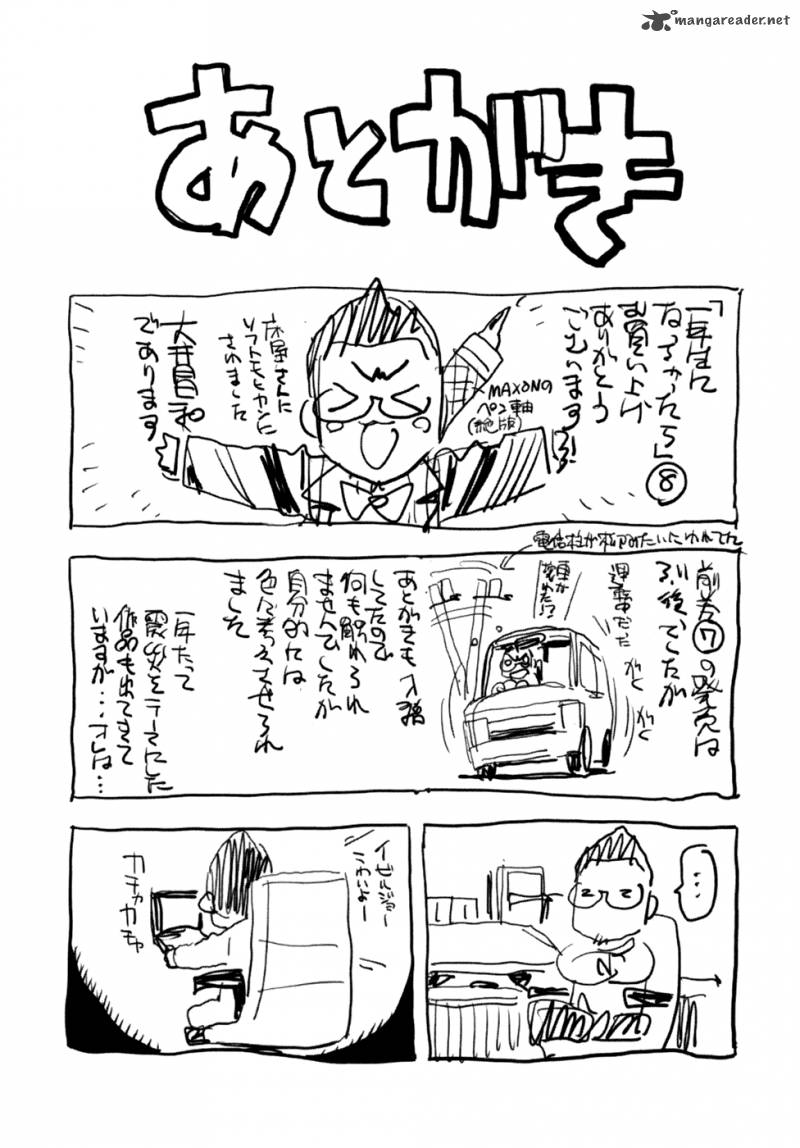 mangareader.net
あとがき
「一年生に
なっちゃったら」⑧
お買い上げ
ありがとう
ございます!
MAXONの
ペン軸
(絶版)
床屋さんに
ソフトモヒカンに
されました
大井昌和
であります
前巻⑦の発売は
でしたが
運転中だった
ガく
ガく
あとがきも入稿
してたので
何も触れられ
ませんでしたが
自分的には
色々考えさせられ
ました
一年たって
震災をテーマにした
作品も出てきて
いますが・・・オレは…
…
イゼルジョー
こわいよー
カチャカチャ